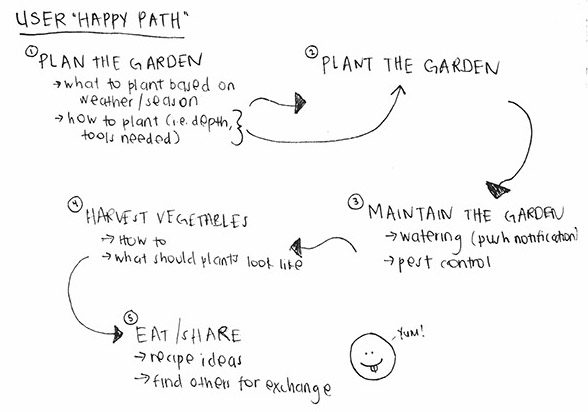 USER "HAPPY PATH"
① PLAN THE GARDEN
→ what to plant based on
weather/season
→ how to plant (i.e. depth,
tools needed)
② PLANT THE GARDEN
③ MAINTAIN THE GARDEN
→ watering (push notification)
→ pest control
④ HARVEST VEGETABLES
→ HOW to
→ what should plants look like
⑤ EAT/SHARE
→ recipe ideas
→ find others for exchange
YUM!